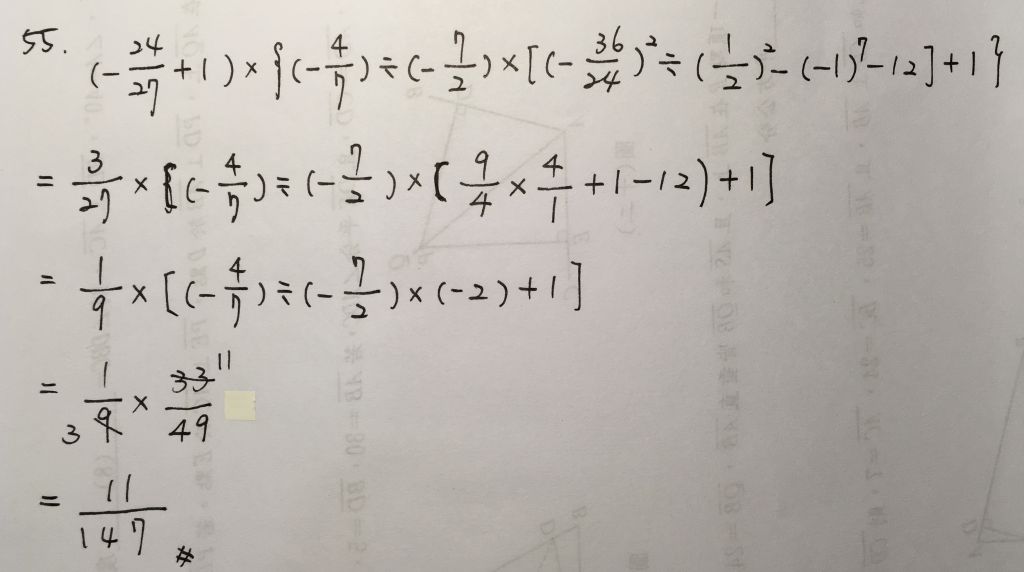 55. (-24/27+1)×{(-4/7)÷(-7/2)×[(-36/24)²÷(1/2)²-(-1)⁷-12]+1}
= 3/27×[(-4/7)÷(-7/2)×[9/4×4/1+1-12)+1]
= 1/9×[(-4/7)÷(-7/2)×(-2)+1]
= 1/9 3 × 33/49 11
= 11/147 #